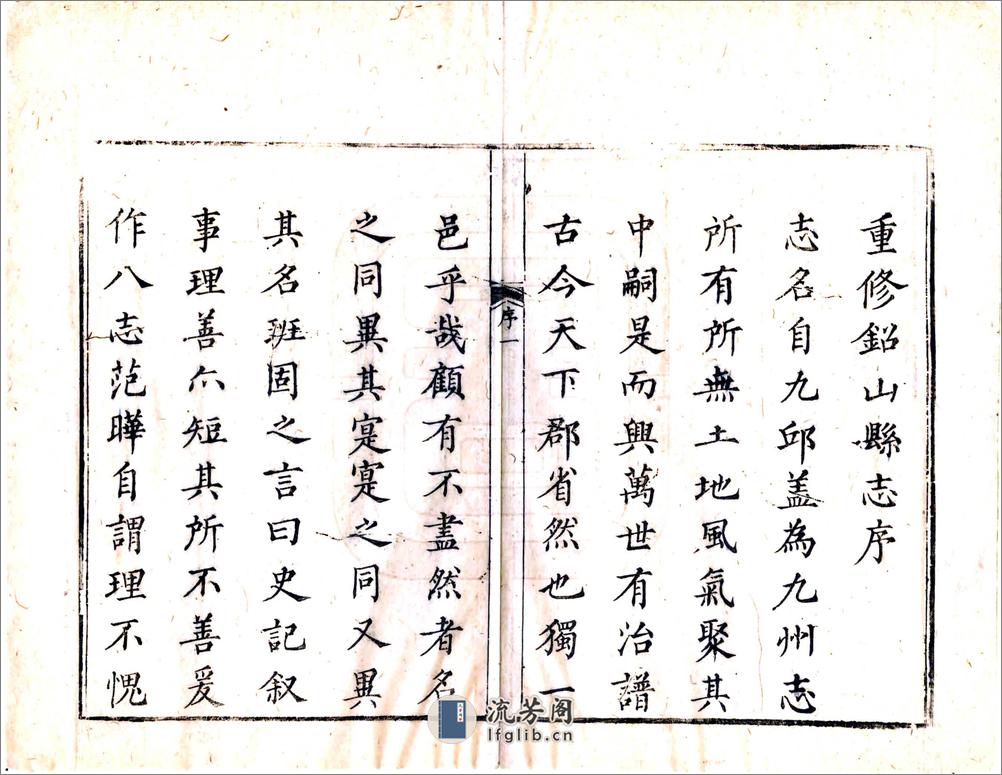 重修鈆山縣志序
志名自九邱盖為九州志
所有所無土地風氣聚其
中嗣是而興萬世有治譜
古今天下郡省然也獨一
序一
邑乎哉顧有不盡然者名
之同異其寔寔之同又異
其名班固之言曰史記叙
事理善亦短其所不善爰
作八志范曄自謂理不愧
流芳阁
lfglib.cn